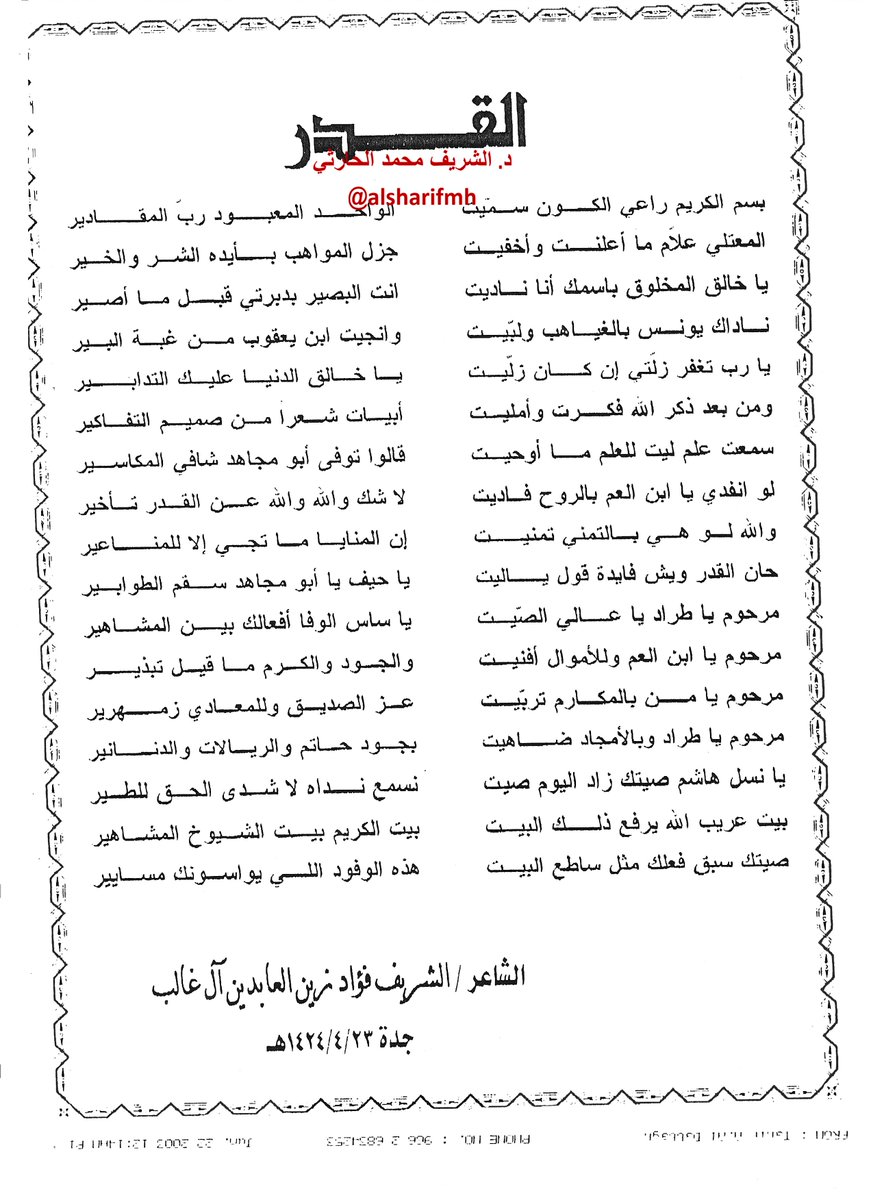 القدر
د. الشريف محمد الحارثي
@alsharifmh
بسم الكريم راعي الكون سميّت الواحد المعبود ربّ المقادير
المعتلي علاّم ما أعلنت وأخفيت جزل المواهب بأيده الشر والخير
يا خالق المخلوق باسمك أنا ناديت انت البصير بدبرتي قبل ما أصير
ناداك يونس بالغياهب ولبّيت وانجيت ابن يعقوب من غبة البير
يا رب تغفر زلّتي إن كان زلّيت يا خالق الدنيا عليك التدابير
ومن بعد ذكر الله فكرت وأمليت أبيات شعراً من صميم التفاكير
سمعت علم ليت للعلم ما أوحيت قالوا توفى أبو مجاهد شافي المكاسير
لو انفدي يا ابن العم بالروح فاديت لا شك والله والله عن القدر تأخير
والله لو هي بالتمني تمنيت إن المنايا ما تجي إلا للمناعير
حان القدر ويش فايدة قول ياليت يا حيف يا أبو مجاهد سقم الطوابير
مرحوم يا طراد يا عالي الصّيت يا ساس الوفا أفعالك بين المشاهير
مرحوم يا ابن العم وللأموال أفنيت والجود والكرم ما قيل تبذير
مرحوم يا من بالمكارم تربّيت عز الصديق وللمعادي زمهرير
مرحوم يا طراد وبالأمجاد ضاهيت بجود حاتم والريالات والدنانير
يا نسل هاشم صيتك زاد اليوم صيت نسمع نداه لا شدى الحق للطير
بيت عريب الله يرفع ذلك البيت بيت الكريم بيت الشيوخ المشاهير
صيتك سبق فعلك مثل ساطع البيت هذه الوفود اللي يواسونك مسايير
الشاعر / الشريف فؤاد زين العابدين آل غالب
جدة ١٤٢٤/٤/٢٣هـ
PHONE NO. : 966 2 6834253 Jun. 22 2003 12:14AM P1